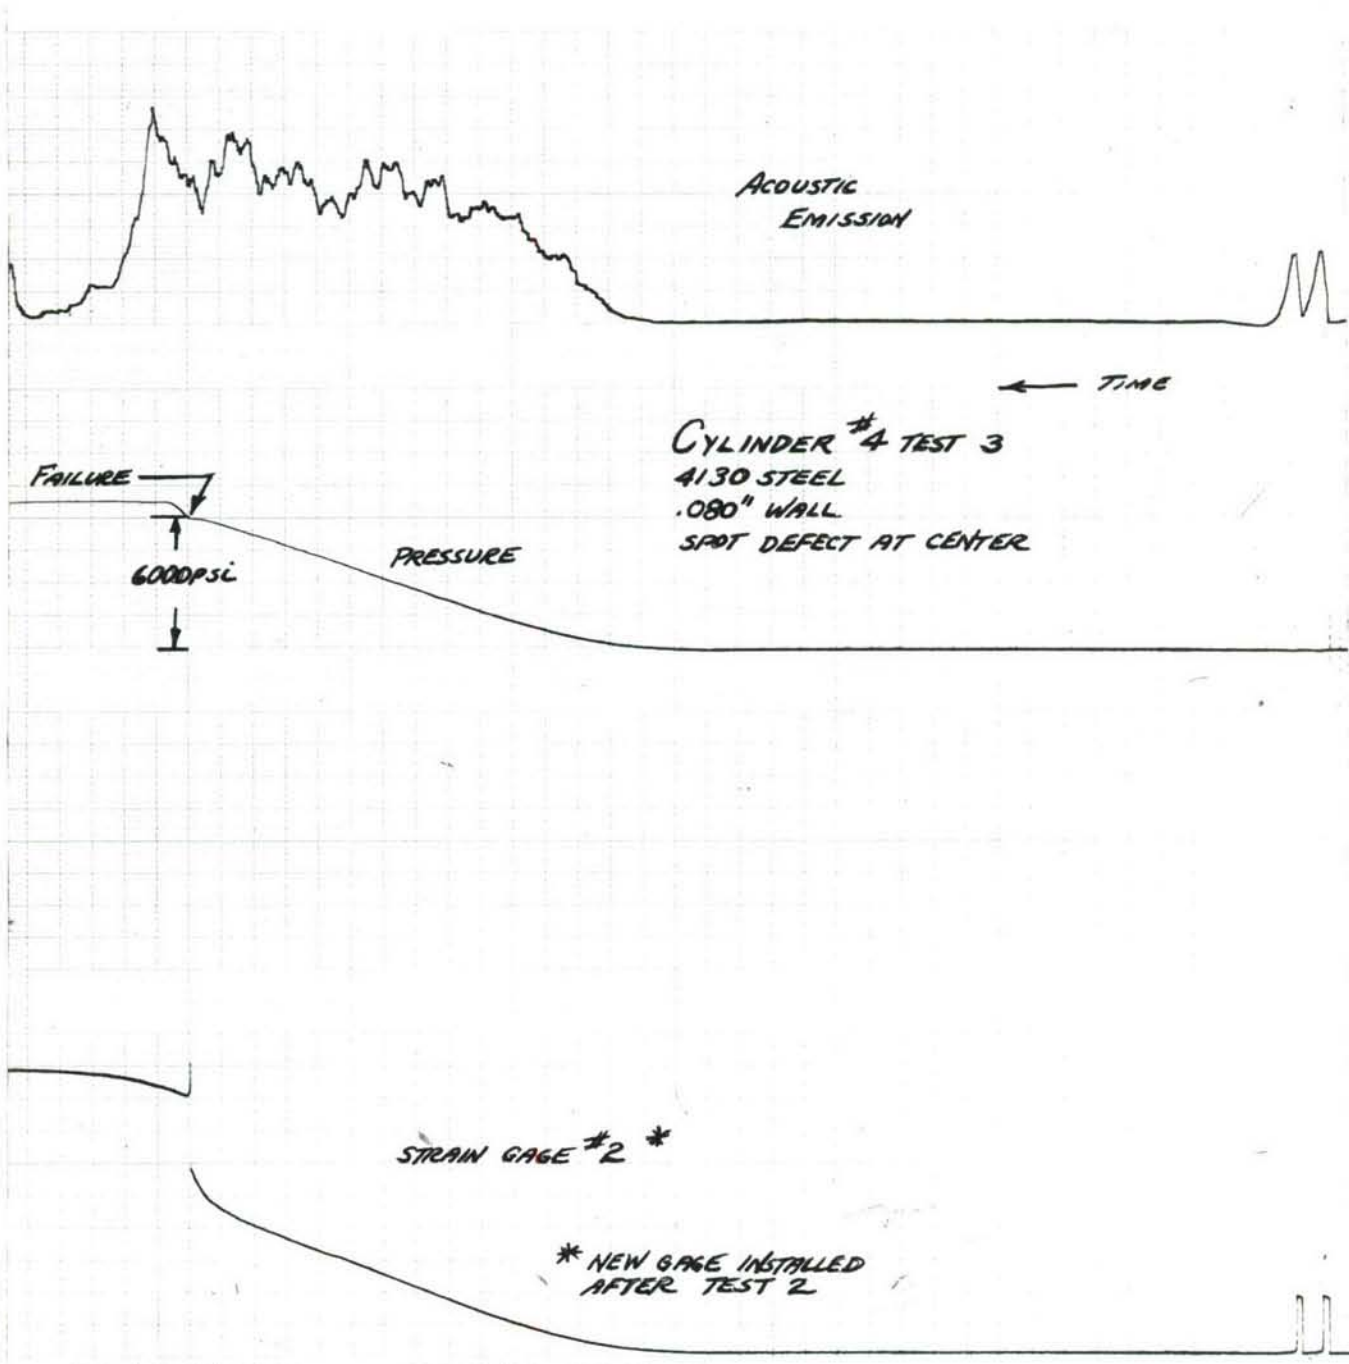 ACOUSTIC
EMISSION
← TIME
CYLINDER #4 TEST 3
4130 STEEL
.080" WALL
SPOT DEFECT AT CENTER
FAILURE
PRESSURE
6000PSi
STRAIN GAGE #2 *
* NEW GAGE INSTALLED
AFTER TEST 2